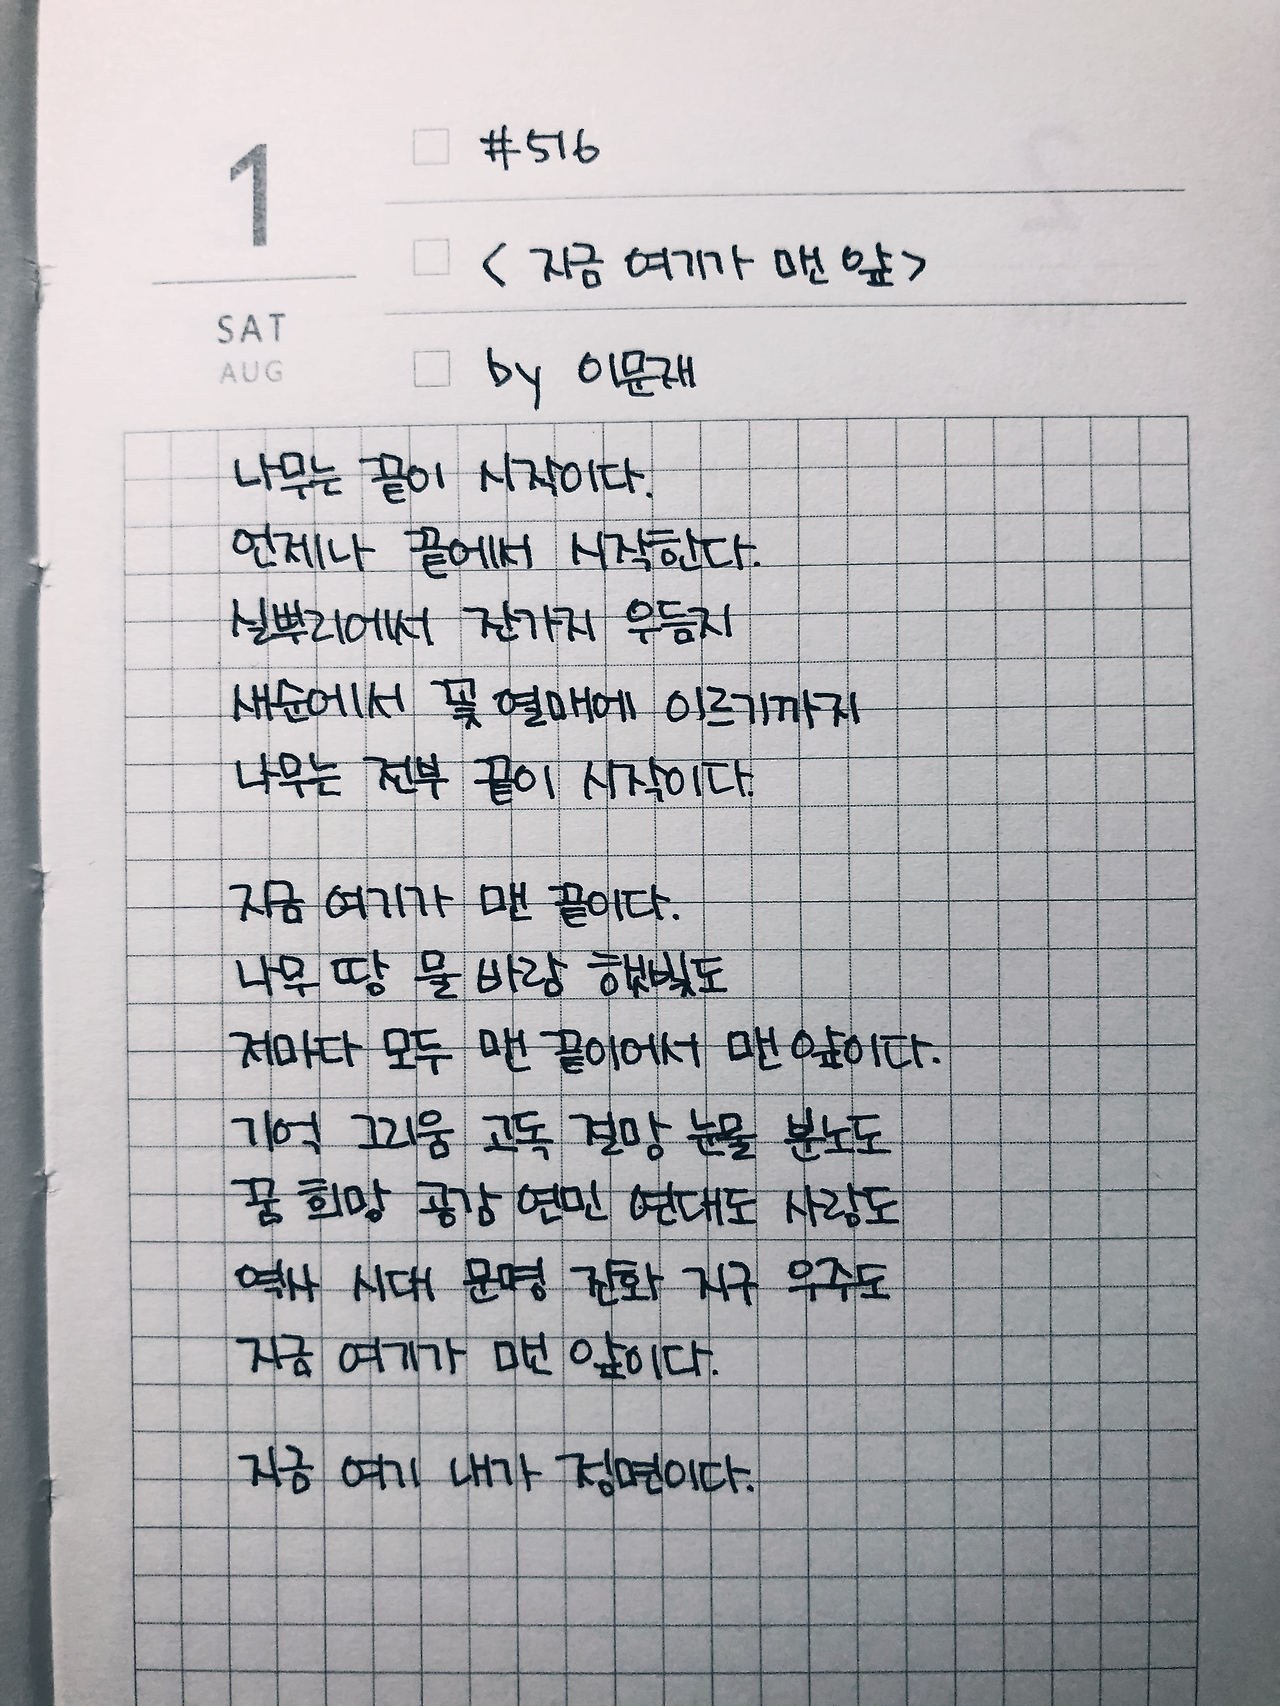 1
SAT
AUG
#516
<지금 여기가 맨 앞>
by 이문재
나무는 끝이 시작이다.
언제나 끝에서 시작한다.
실뿌리에서 잔가지 우듬지
새순에서 꽃 열매에 이르기까지
나무는 전부 끝이 시작이다.
지금 여기가 맨 끝이다.
나무 땅 물 바람 햇빛도
저마다 모두 맨 끝이어서 맨 앞이다.
기억 그리움 고독 절망 눈물 분노도
꿈 희망 공감 연민 연대도 사랑도
역사 시대 문명 진화 지구 우주도
지금 여기가 맨 앞이다.
지금 여기 내가 정면이다.